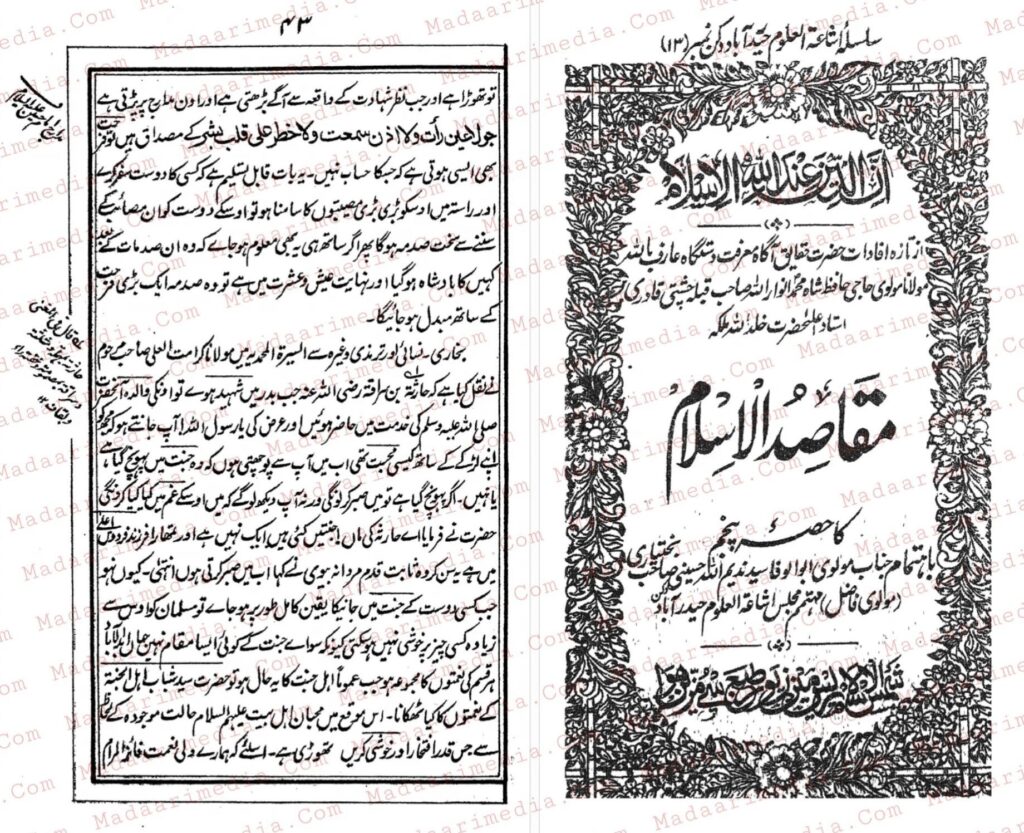 سلسلہ اشاعۃ العلوم حیدرآباد دکن نمبر (۱۳)
ان الدین عند اللہ الاسلام
از تازہ افادات حضرت حقایق آگاہ معرفت دستگاہ عارف باللہ
مولانا مولوی حاجی حافظ شاہ محمد انوار اللہ صاحب قبلہ چشتی قادری
استاد اعلحضرت خلد اللہ ملکہ
مقاصد الاسلام
کا حصۂ پنجم
باہتمام جناب مولوی ابوالوفا سید ندیم اللہ حسینی صاحب بختیاری
(مولوی فاضل) مہتمم مجلس اشاعۃ العلوم حیدرآباد دکن
۴۳
تو تھوڑا ہے اور جب نظر شہادت کے واقعہ سے آگے بڑھتی ہے اور اون مدارج پر پڑتی ہے
جو لا عین رأت ولا اذن سمعت ولا خطر علی قلب بشر کے مصداق ہیں تو فرحت
بھی ایسی ہوتی ہے کہ جسکا حساب نہیں۔ یہ بات قابل تسلیم ہے کہ کسی کا دوست سفر کرے
اور راستہ میں اوسکو بڑی بڑی مصیبتوں کا سامنا ہو تو اوسکے دوست کو ان مصائب کے
سننے سے سخت صدمہ ہوگا پھر اگر ساتھ ہی یہ بھی معلوم ہو جاے کہ وہ ان صدمات کے بعد
کہیں کا بادشاہ ہوگیا اور نہایت عیش و عشرت میں ہے تو وہ صدمہ ایک بڑی فرحت
کے ساتھ مبدل ہو جائیگا۔
بخاری۔ نسائی اور ترمذی وغیرہ سے السیرۃ المحمدیہ میں مولانا کرامت العلی صاحب مرحوم
نے نقل کیا ہے کہ حارثہ بن سراقہ رضی اللہ عنہ جب بدر میں شہید ہوے تو اونکی والدہ آنحضرت
صلی اللہ علیہ وسلم کی خدمت میں حاضر ہوئیں اور عرض کی یا رسول اللہ آپ جانتے ہو کہ مجھکو
اپنے لڑکے کے ساتھ کیسی محبت تھی اب میں آپ سے پوچھتی ہوں کہ وہ جنت میں پہونچ گیا ہے
یا نہیں۔ اگر پہونچ گیا ہے تو میں صبر کرونگی ورنہ آپ دیکھ لوگے کہ میں اوسکے غم میں کیا کیا کرونگی
حضرت نے فرمایا اے حارثہ کی ماں جنتیں کئی ہیں ایک نہیں ہے اور تمھارا فرزند فردوس اعلیٰ
میں ہے یہ سن کر وہ ثابت قدم مردانہ بیوی نے کہا اب میں صبر کرتی ہوں انتہیٰ۔ کیوں نہو
جب کسی دوست کے جنت میں جانیکا یقین کامل طور پر ہو جاے تو مسلمان کو اوس سے
زیادہ کسی چیز پر خوشی نہیں ہوسکتی کیونکہ سواے جنت کے کوئی ایسا مقام نہیں جہاں ابدالآباد
ہر قسم کی نعمتوں کا مجموعہ ہو جب عموماً اہل جنت کا یہ حال ہو تو حضرت سید شباب اہل الجنۃ
کے نعمتوں کا کیا ٹھکانا۔ اس موقع میں محبان اہل بیت علیہم السلام حالت موجودہ کے لحاظ
سے جس قدر افتخار اور خوشی کریں تھوڑی ہے۔ اسلئے کہ ہمارے ولی نعمت فائز المرام
Madaarimedia.Com